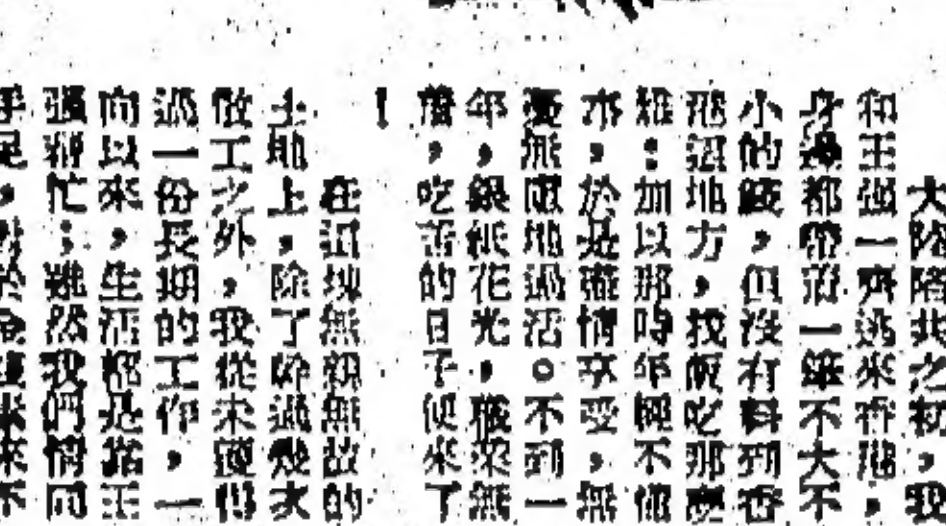 大陸陷共之初，我
和王強一齊逃來香港，
身邊都帶着一筆不大不
小的錢，但沒有料到香
港這地方，找飯吃那麼
難：加以那時年輕不懂
木，於是盡情享受，無
憂無慮地過活。不到一
年，銀紙花光，職業無
着，吃苦的日子便來了
！
在這塊無親無故的
土地上，除了幹過幾次
散工之外，我從未獲得
過一份長期的工作，一
向以來，生活都是靠王
強幫忙；雖然我們情同
手足，